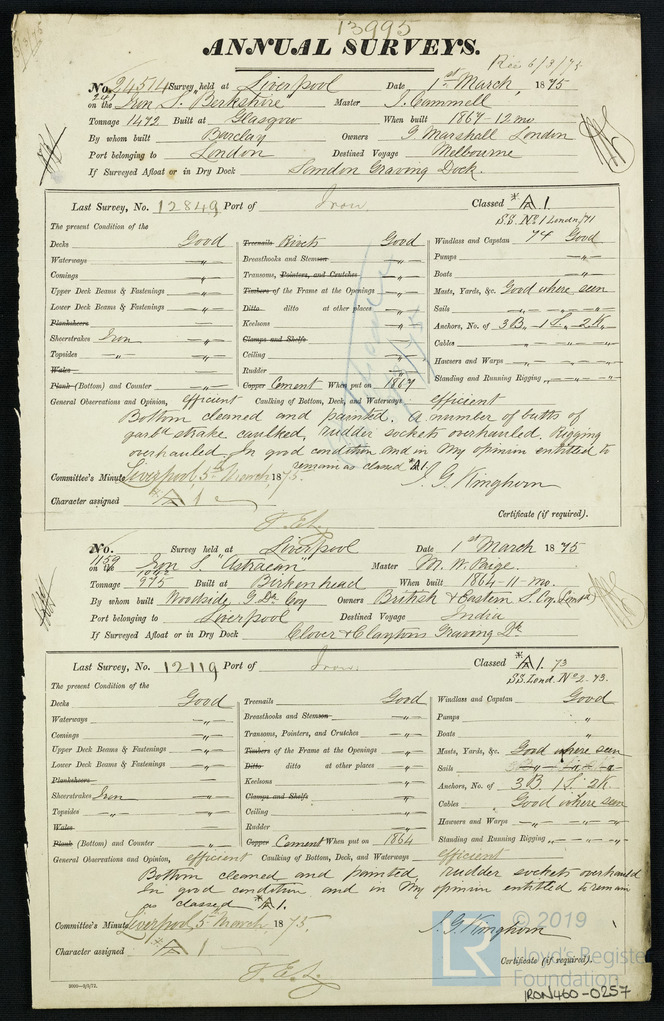 13995
ANNUAL SURVEYS.
Rec 6/3/75
No. 24514 Survey held at Liverpool Date 1st March, 1875
on the Iron S. "Berkshire" Master J. Cammell
Tonnage 1472 Built at Glasgow When built 1867-12 mo
By whom built Barclay Owners G. Marshall London
Port belonging to London Destined Voyage Melbourne
If Surveyed Afloat or in Dry Dock Graving Dock.
Last Survey, No. 12849 Port of Iron Classed *A 1.
S.S. No. 1 Londn /71
The present Condition of the
Decks Good Treenails Birch Good Windlass and Capstan 74 Good
Waterways —"— Breasthooks and Stemson —"— Pumps —"—
Comings —"— Transoms, Pointers, and Crutches —"— Boats —"—
Upper Deck Beams & Fastenings —"— Timbers of the Frame at the Openings —"— Masts, Yards, &c. Good where seen
Lower Deck Beams & Fastenings —"— Ditto ditto at other places —"— Sails —"—"—"—
Planksheers Keelsons —"— Anchors, No. of 3 B. 1 S. 2 K.
Sheerstrakes Iron —"— Clamps and Shelfs Cables —"—"—"—
Topsides —"— —"— Ceiling —"— Hawsers and Warps —"—"—"—
Wales Rudder —"— Standing and Running Rigging —"—"—"—
Plank (Bottom) and Counter —"— Copper Cement When put on 1867
General Observations and Opinion, efficient Caulking of Bottom, Deck, and Waterways efficient
Bottom cleaned and painted. A number of butts of
garbd strake caulked, rudder sockets overhauled. Rigging
overhauled. In good condition and in my opinion entitled to
remain as classed *A1.
Committee's Minute Liverpool 5th March, 1875.
J. G. Kinghorn
Character assigned *A 1
Certificate (if required).
No. 1159 Survey held at Liverpool Date 1st March 1875
on the Iron S. "Astraean" Master M. W. Paige.
Tonnage 975 Built at Birkenhead When built 1864-11 mo.
By whom built Woodside G. Dk Coy Owners British & Eastern S. Coy Limtd
Port belonging to Liverpool Destined Voyage India
If Surveyed Afloat or in Dry Dock Clover & Claytons Graving Dk
Last Survey, No. 12119 Port of Iron. Classed *A 1. 73
S.S. Lond. No 2-73.
The present Condition of the
Decks Good Treenails Good Windlass and Capstan Good
Waterways —"— Breasthooks and Stemson —"— Pumps "
Comings —"— Transoms, Pointers, and Crutches —"— Boats "
Upper Deck Beams & Fastenings —"— Timbers of the Frame at the Openings —"— Masts, Yards, &c. Good where seen
Lower Deck Beams & Fastenings —"— Ditto ditto at other places —"— Sails
Planksheers Keelsons —"— Anchors, No. of 3 B. 1 S. 2 K.
Sheerstrakes Iron —"— Clamps and Shelfs Cables Good where seen
Topsides —"— —"— Ceiling —"— Hawsers and Warps —"—"—"—
Wales Rudder —"— Standing and Running Rigging —"—"—"—
Plank (Bottom) and Counter —"— Copper Cement When put on 1864
General Observations and Opinion, efficient Caulking of Bottom, Deck, and Waterways efficient
Bottom cleaned and painted, rudder sockets overhauled
In good condition and in my opinion entitled to remain
as classed *A 1.
Committee's Minute Liverpool, 5th March 1875
J. G. Kinghorn
Character assigned *A 1
Certificate (if required).
3000—3/2/72.
© 2019
LR
Lloyd's Register
Foundation
IRON460-0257